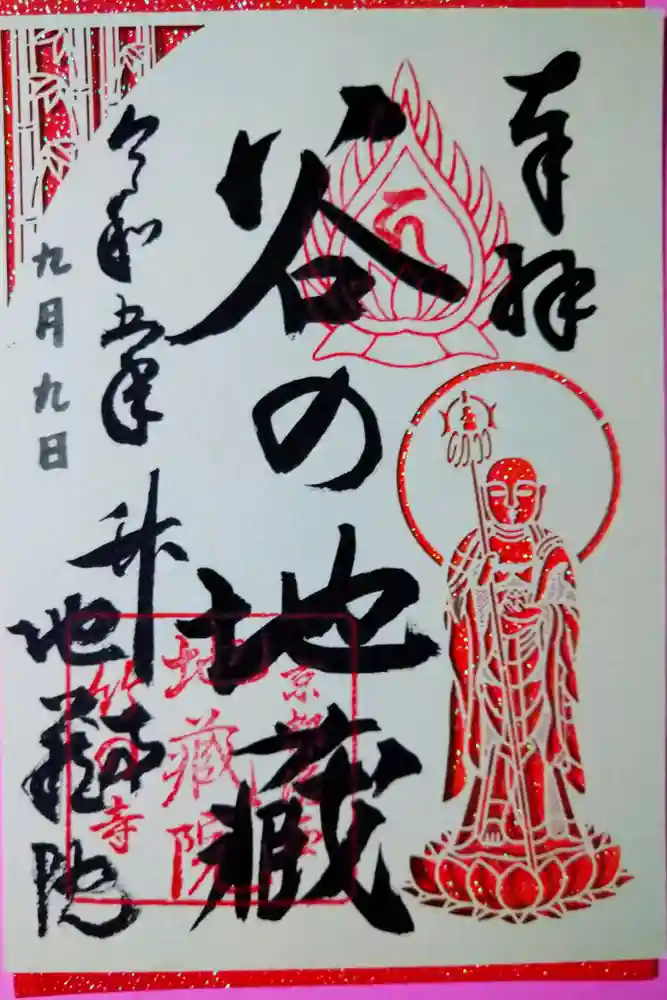 奉拝
谷の地蔵
令和五年
九月九日
竹の寺
地蔵院
京都
地蔵院
竹の寺